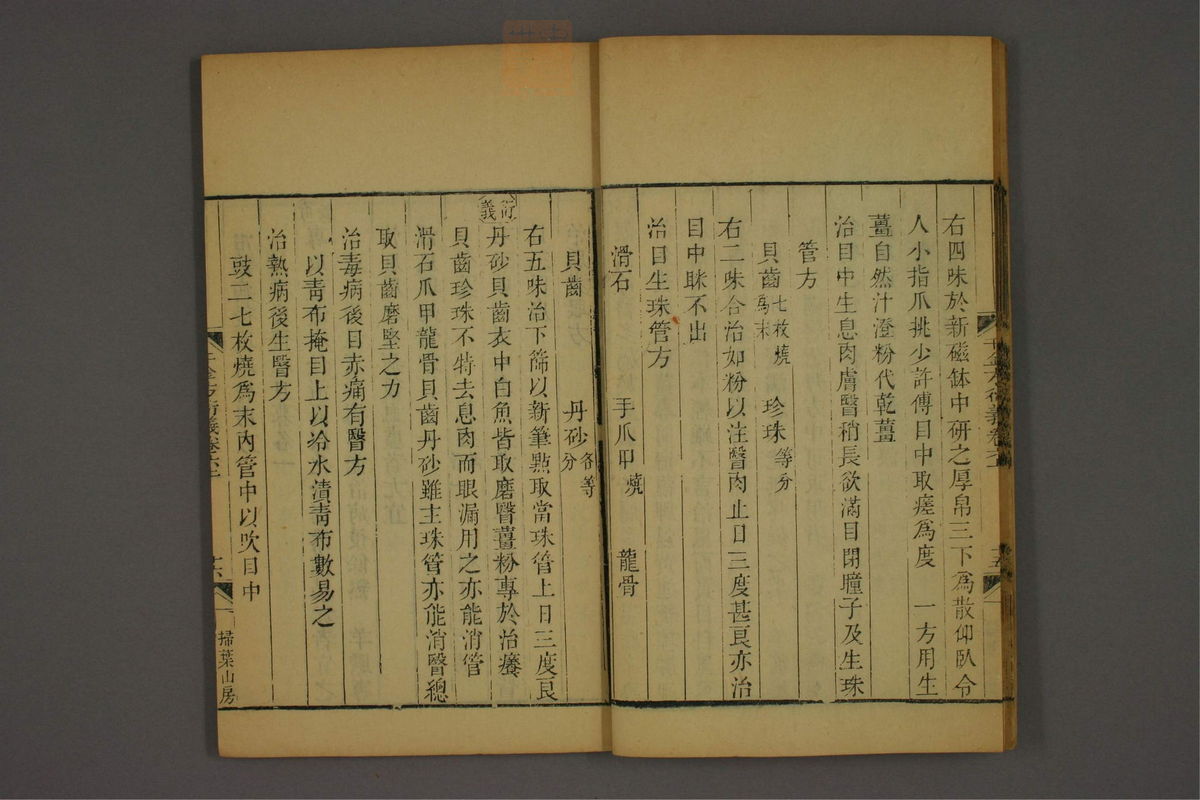 右四味於新磁缽中研之厚帛三下為散仰臥令
人小指爪挑少許傅目中取瘥為度　一方用生
薑自然汁澄粉代乾薑
治目中生息肉膚瞖稍長欲滿目閉瞳子及生珠
管方
貝齒七枚燒為末　珍珠等分
右二味合治如粉以注瞖肉上日三度甚良亦治
目中眯不出
治目生珠管方
滑石　手爪甲燒　龍骨
貝齒　丹砂各等分
右五味治下篩以新筆點取當珠管上日三度良
衍義
丹砂貝齒衣中白魚皆取磨瞖薑粉專於治癢
貝齒珍珠不特去息肉而眼漏用之亦能消管
滑石爪甲龍骨貝齒丹砂雖主珠管亦能消瞖總
取貝齒磨堅之力
治毒病後目赤痛有瞖方
以青布掩目上以冷水漬青布數易之
治熱病後生瞖方
豉二七枚燒為末內管中以吹目中
千金方衍義卷六上
十六
掃葉山房